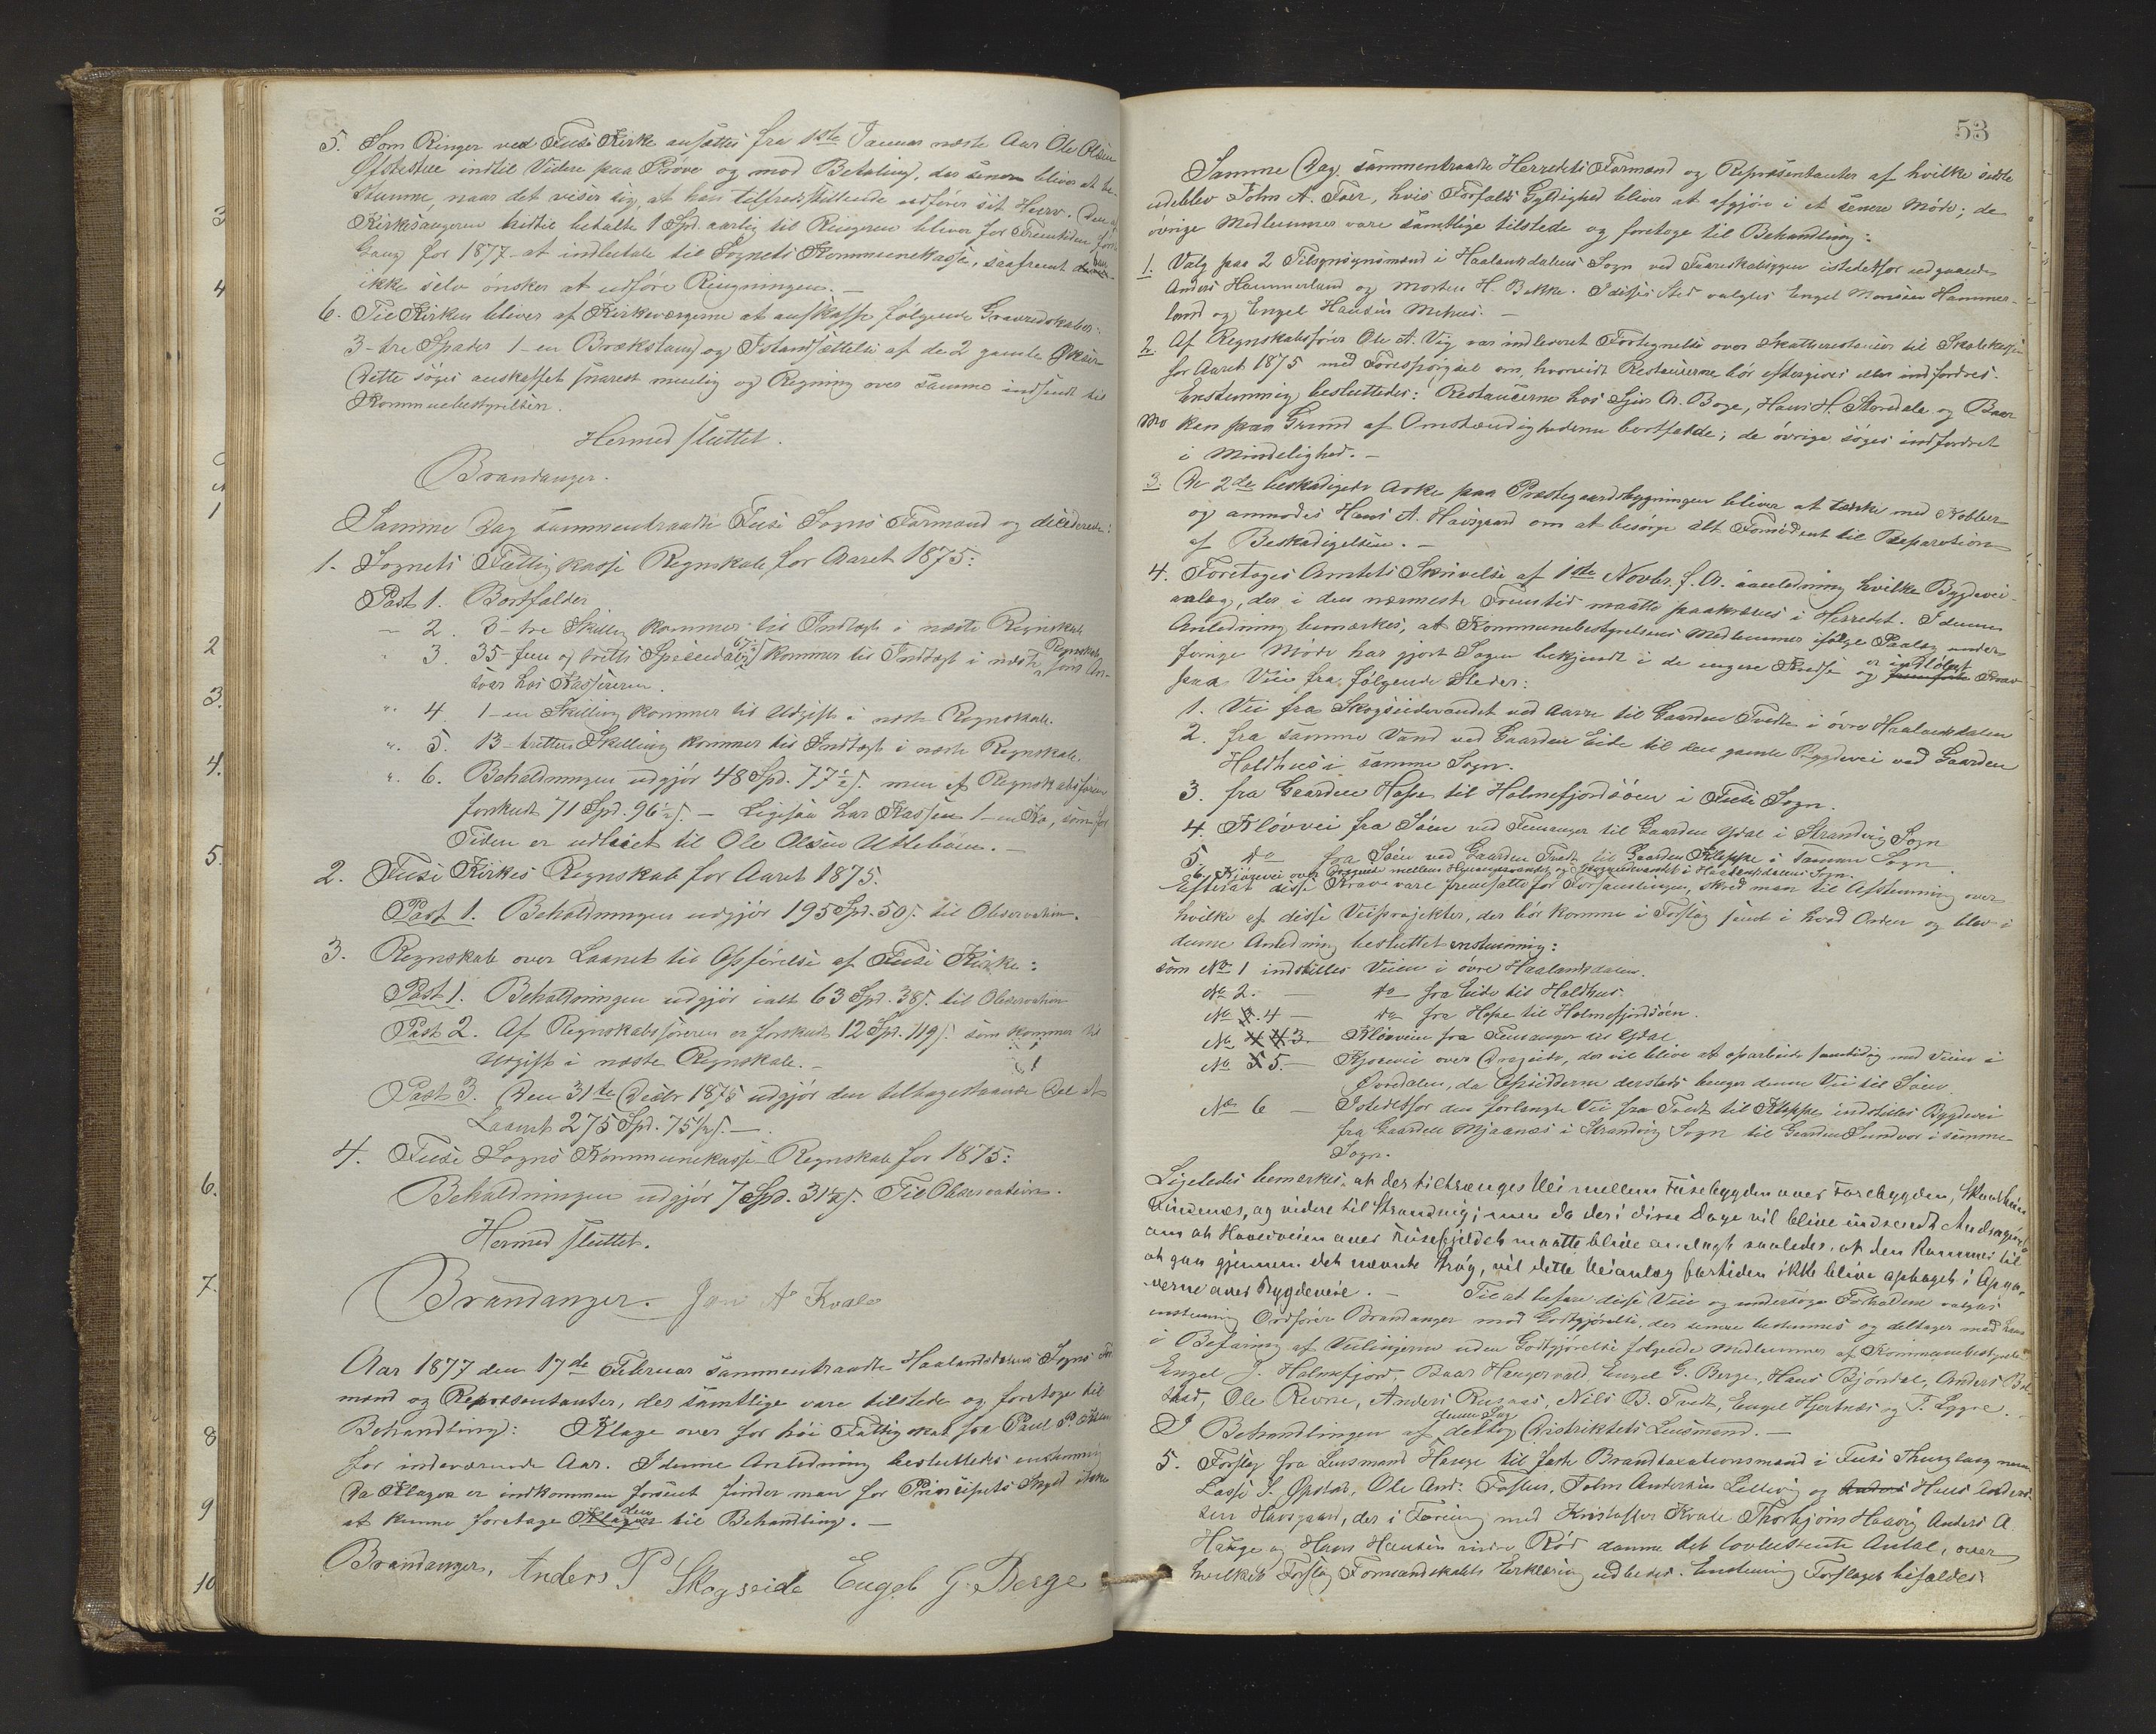 5. Som Ringer ved Fuse Kirke ansættes fra 1ste Januar næste Aar Ole Olsen
indtil Videre paa Prøve og mod Betaling, der senere bliver at be-
stemme, naar det viser sig, at han tilfredsstillende udfører sit Hverv. Den af
Kirkesangeren hidtil betalte 1 Spd. aarlig til Ringeren bliver for Fremtiden første
Gang for 1877 at indbetale til Sognets Kommunekasse, saafremt
ikke selv ønsker at udføre Ringningen. —
6. Til Kirken bliver af Kirkeværgerne at anskaffe følgende Gravredskaber:
3-tre Spader 1-en Brækstang og Istandsættelse af de 2 gamle Økser
Dette søges anskaffet snarest muelig og Regning over samme indsendt til
Kommunebestyrelsen.
Hermed sluttet.
Brandanger.
Samme Dag sammentraadte Fuse Sogns Formænd og deciderede:
1. Sognets Fattigkasse Regnskab for Aaret 1875:
Post 1. Bortfalder
— 2. 3-tre Skilling kommer til Indtægt i næste Regnskab
" 3. 35-fem og tretti Speciedaler kommer til Indtægt i næste Regnskab som An-
svar hos Kassereren.
" 4. 1-en Skilling kommer til Udgift i næste Regnskab.
" 5. 13-tretten Skilling kommer til Indtægt i næste Regnskab.
" 6. Beholdningen udgjør 48 Spd. 77½ s. men af Regnskabsføreren
forskudt 71 Spd. 96½ s. — Ligesaa har Kassen 1-en Ko, som for
Tiden er udleiet til Ole Olsen Uttebøen. —
2. Fuse Kirkes Regnskab for Aaret 1875.
Post 1. Beholdningen udgjør 195 Spd. 50 s. til Observation.
3. Regnskab over Laanet til Opførelse af Fuse Kirke:
Post 1. Beholdningen udgjør ialt 63 Spd. 38 s. til Observation
Post 2. Af Regnskabsføreren er forskudt 12 Spd. 119 s. som kommer til
Udgift i næste Regnskab. —
Post 3. Den 31te Decbr 1875 udgjør den tilbagestaaende Del af
Laanet 275 Spd. 75½ s. —
4. Fuse Sogns Kommunekasse Regnskab for 1875:
Beholdningen udgjør 7 Spd. 31½ s. Til Observation.
Hermed sluttet.
Brandanger. Jon A. Kvale
Aar 1877 den 17de Februar sammentraadte Haalandsdalens Sogns For-
mænd og Repræsentanter, der samtlige vare tilstede og foretoge til
Behandling: Klage over for høi Fattigskat fra Paul P.
for indeværende Aar. I denne Anledning besluttedes enstemmig
Da Klagen er indkommen forsent finder man for Principets Skyld ikke
at kunne foretage Klagen den til Behandling. —
Brandanger, Anders P Skogseide Engel G. Berge
53
Samme Dag sammentraadte Herredets Formænd og Repræsentanter af hvilke sidste
udeblev John A. Toer, hvis Forfalds Gyldighed bliver at afgjøre i et senere Møde; de
øvrige Medlemmer vare samtlige tilstede og foretoge til Behandling:
1. Valg paa 2 Tilsynsmænd i Haalandsdalens Sogn ved istedetfor udgaaende
Anders Hammerland og Morten H. Bakke. I disses Sted valgtes Engel Monsen Hammer-
land og Engel Hansen Mehus. —
2. Af Regnskabsfører Ole A. Vig var indleveret Fortegnelse over Skatterestancer til Skolekassen
for Aaret 1875 med Forespørgsel om, hvorvidt Restancerne bør eftergives eller indfordres.
Enstemmig besluttedes: Restancerne hos Sjur A. Boge, Hans H. Storedale og Baar
Mo kan paa Grund af Omstændighederne bortfalde; de øvrige søges indfordret
i Mindelighed. —
3. De 2de beskadigede Arke paa Præstegaardsbygningen bliver at tække med Kobber
og anmodes Hans A. Havsgaard om at besørge alt Fornødent til Reparation
af Beskadigelsen. —
4. Foretoges Amtets Skrivelse af 1ste Novbr. f. A. i anledning hvilke Bygdevei-
anlæg, der i den nærmeste Fremtid maatte paakræves i Herredet. I denne
Anledning bemærkes, at Kommunebestyrelsens Medlemmer ifølge Paalæg under
forrige Møde har gjort Sagen bekjendt i de engere Kredse og er indløbet Krav
paa Veie fra følgende Steder:
1. Vei fra Skogseidevandet ved Aarre til Gaarden Tvedte i øvre Haalandsdalen
2. fra samme Vand ved Gaarden Eide til den gamle Bygdevei ved Gaarden
Holdhus i samme Sogn.
3. fra Gaarden Hope til Holmefjordsøen i Fuse Sogn.
4. Kløvvei fra Søen ved Femanger til Gaarden Ydal i Strandvig Sogn
5. do fra Søen ved Gaarden Tvedt til Gaarden Kleppe i samme Sogn
6. Kjørevei over Drageide mellem Henangervandet og Skogseidevandet i Haalandsdalens Sogn.
Efterat disse Krav vare fremsatte for Forsamlingen, skred man til Afstemning over
hvilke af disse Veiprojekter, der bør komme i Forslag samt i hvad Orden og blev i
denne Anledning besluttet enstemmig:
som No 1 indstilles Veien i øvre Haalandsdalen.
No 2. — do fra Eide til Holdhus.
No 4 — do fra Hope til Holmefjordsøen.
No 3. Kløvveien fra Femanger til Ydal
No 5. — Kjørevei over Drageide, der vil blive at oparbeide samtidig med Veien i
Øvredalen, da Opsidderne dersteds bruger denne Vei til Søen
No 6 — Istedetfor den forlangte Vei fra Tvedt til Kleppe indstilles Bygdevei
fra Gaarden Mjaanæs i Strandvig Sogn til Gaarden Sundvor i samme
Sogn.
Ligeledes bemærkes, at der tiltrænges Vei mellem Fusebygden over Forebygden,
Vindenes, og videre til Strandvig; men da der i disse Dage vil blive indsendt Andragende
om at Hovedveien over Fusefjeldet maatte blive anlagt saaledes, at den kommer til
at gaa gjennem det nævnte Strøg, vil dette Veianlæg fortiden ikke blive optaget i Opga-
verne over Bygdeveie. — Til at befare disse Veie og undersøge Forholdene valgtes
enstemmig Ordfører Brandanger mod Godtgjørelse, der senere bestemmes og deltager med ham
i Befaring af Veilinierne uden Godtgjørelse følgende Medlemmer af Kommunebestyrelsen
Engel J. Holmefjord, Baar Hangervald, Engel G. Berge, Hans Bjørdal, Anders
Ole Revne, Anders Rusnæs, Nils B. Tvedt, Engel Hjertnæs og T. Lygre.
I Behandlingen af denne Sag deltog Distriktets Lensmand. —
5. Forslag fra Lensmand Hauge til faste Brandtaxationsmænd i Fuse Thinglaug
Lasse S. Opstad, Ole And: John Andersen Lillevig og Hans Anders-
sen Havsgaard, der i Forening med Kristoffer Kvale Thorbjørn Haavig Anders A.
Hauge og Hans Hansen indre Rød danne det lovbestemte Antal, over
hvilket Forslag Formandskabets Erklæring udbedes. Enstemmig Forslaget bifaldes
3
4
1
2
3.
4.
5.
6.
7.
8
9
10